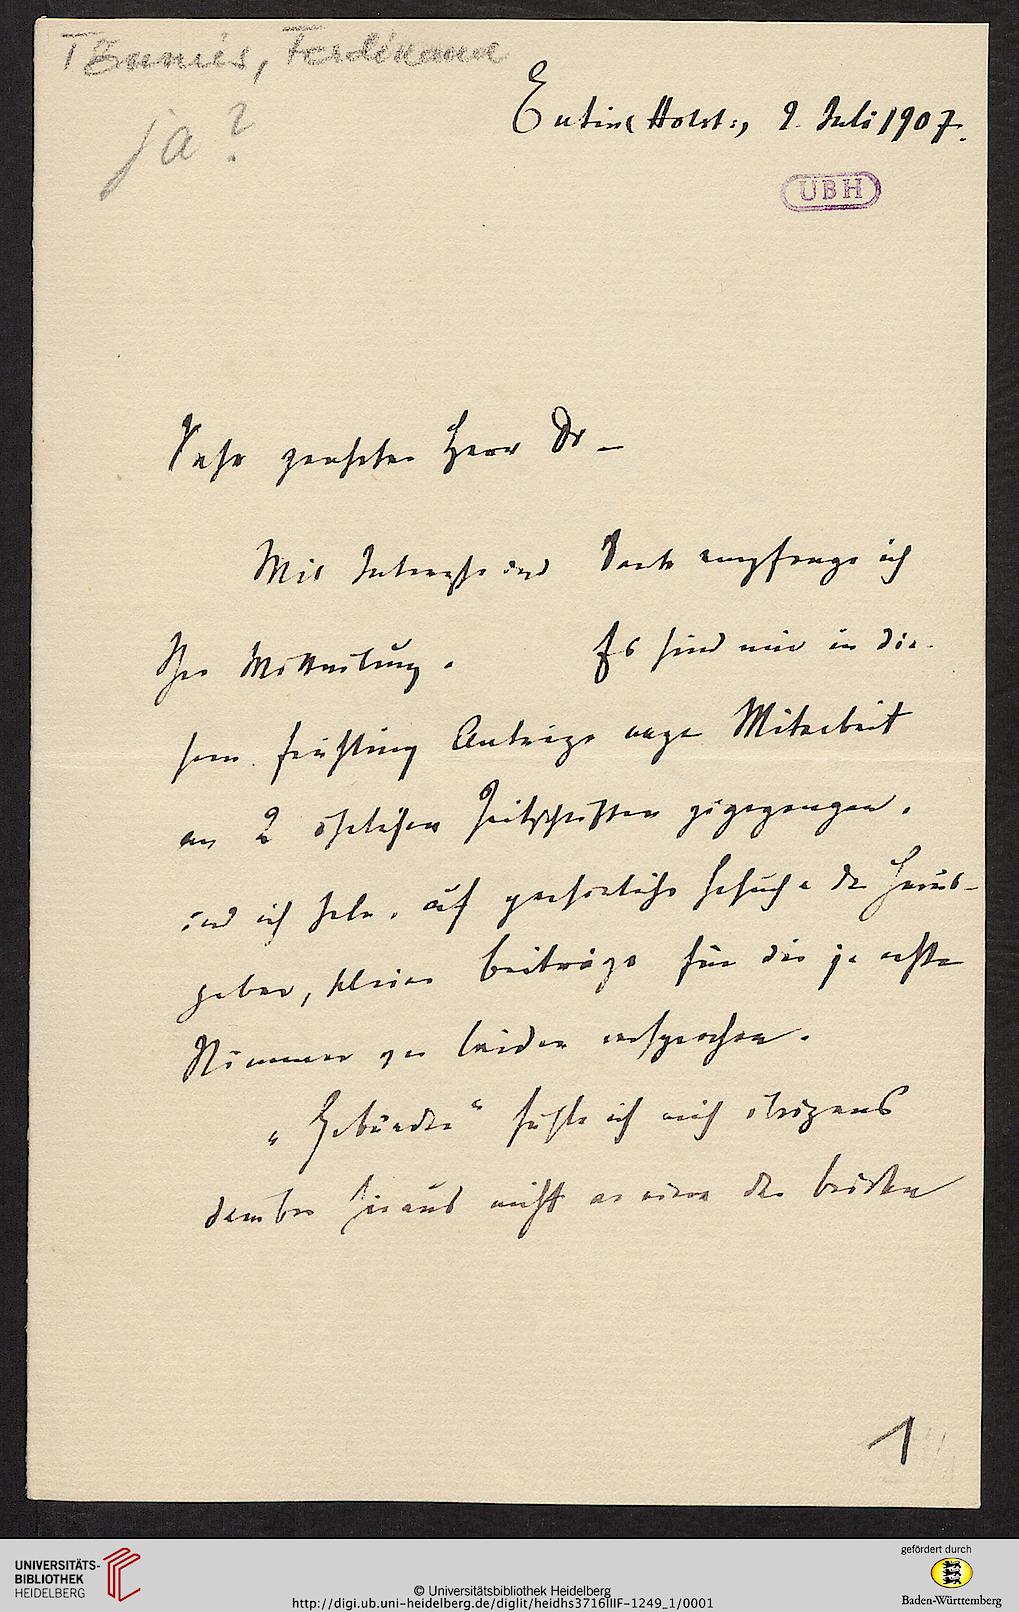 Tönnies, Ferdinand
ja?
Eutin (Holst:), 2. Juli 1907.
UBH
Sehr geehrter Herr Dr –
Mit Interesse und Dank empfange ich
Ihre Mitteilung. Es sind mir in die-
sem Frühling Anträge wegen Mitarbeit
an 2 ähnlichen Zeitschriften zugegangen,
und ich habe, auf persönliche Gesuche der Heraus-
geber, kleine Beiträge für die je erste
Nummer von beiden versprochen.
„Gebunden“ fühle ich mich übrigens
darüber hinaus nicht an eine der beiden
1
UNIVERSITÄTS-
BIBLIOTHEK
HEIDELBERG
© Universitätsbibliothek Heidelberg
http://digi.ub.uni-heidelberg.de/diglit/heidhs3716IIIF-1249_1/0001
gefördert durch
Baden-Württemberg